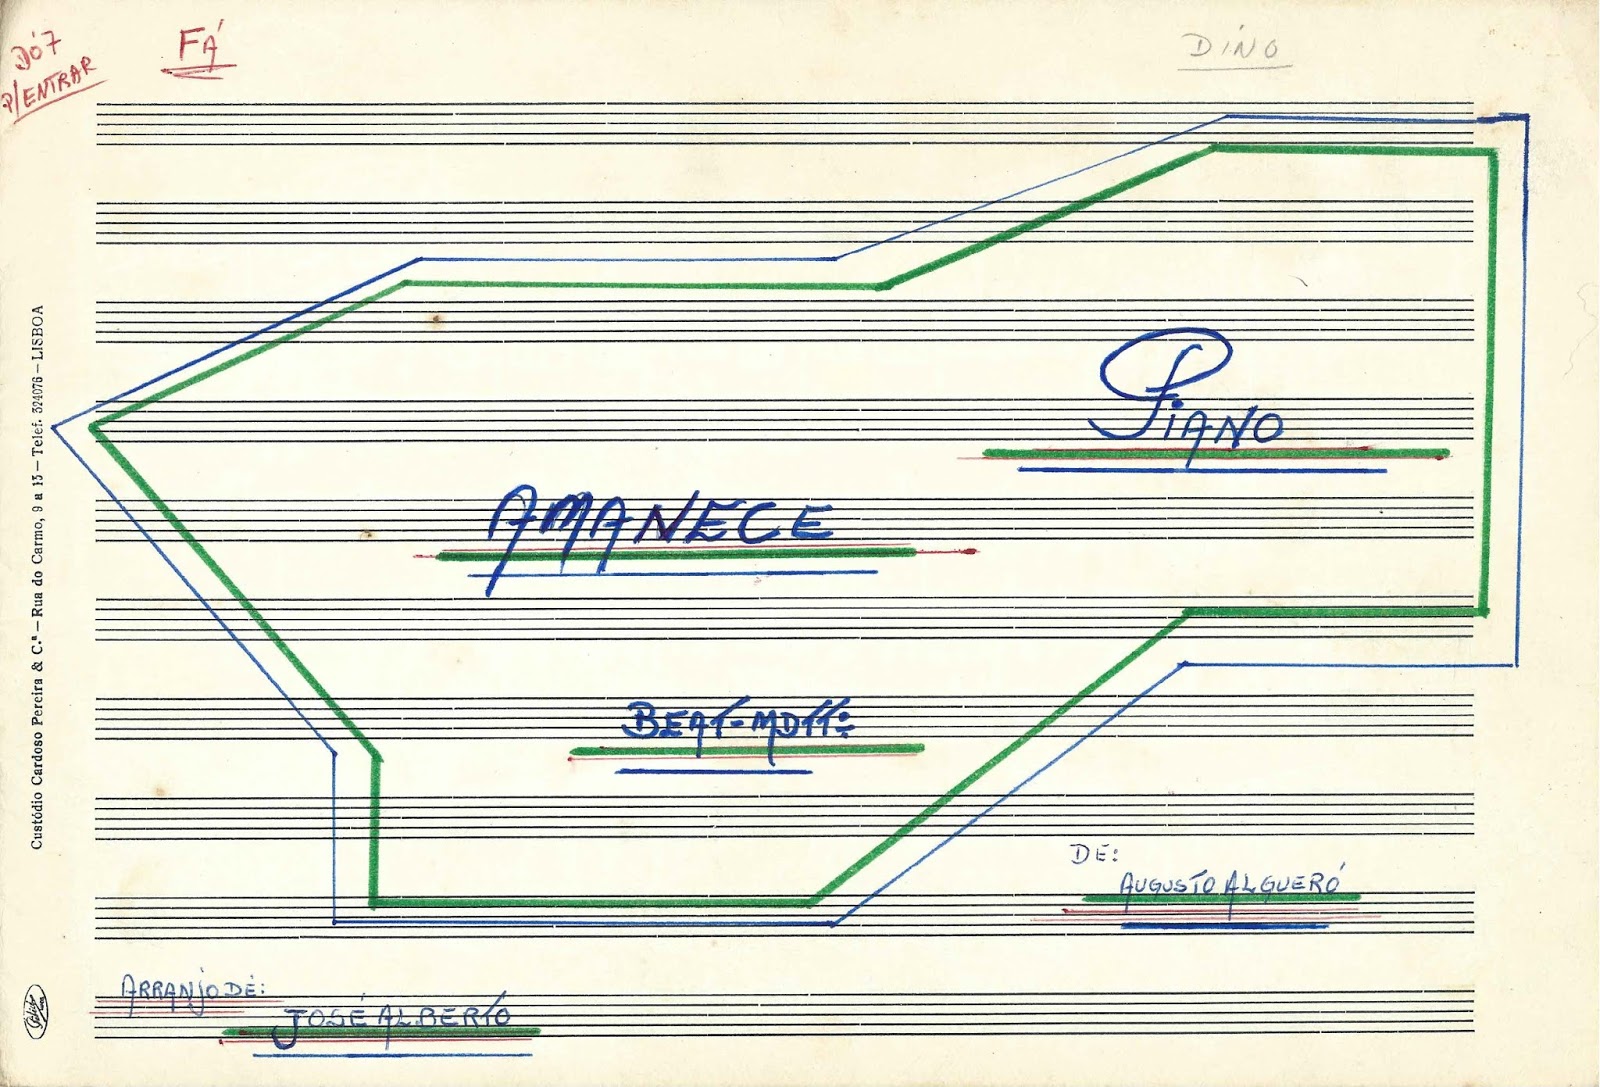 DÓ7
P/ENTRAR
FÁ
DINO
PIANO
AMANECE
BEAT-MDTº:
DE:
AUGUSTO ALGUERÓ
ARRANJO DE:
JOSÉ ALBERTO
Custódio Cardoso Pereira & C.ª – Rua do Carmo, 9 a 13 – Telef. 324076 – LISBOA